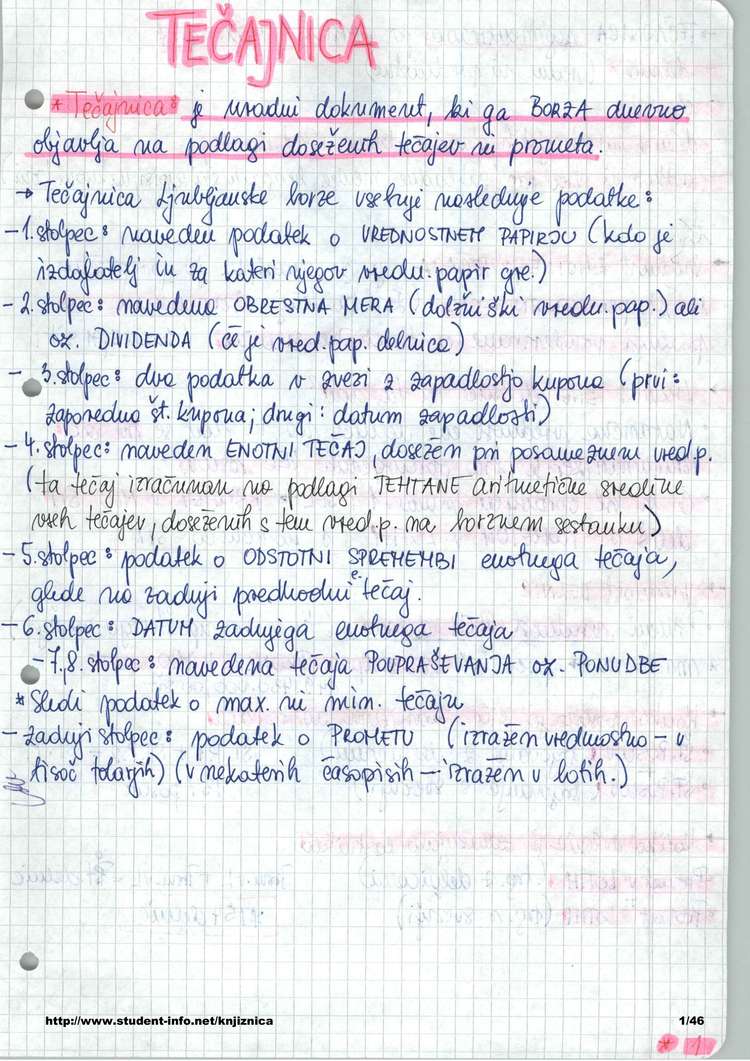 TEČAJNICA
* Tečajnica: je uradni dokument, ki ga BORZA dnevno
objavlja na podlagi doseženih tečajev in prometa.
→ Tečajnica Ljubljanske borze vsebuje naslednje podatke:
- 1. stolpec: naveden podatek o VREDNOSTNEM PAPIRJU (kdo je
izdajatelj in za kateri njegov vredn. papir gre.)
- 2. stolpec: navedena OBRESTNA MERA (dolžniški vredn. pap.) ali
oz. DIVIDENDA (če je vred. pap. delnica)
- 3. stolpec: dva podatka v zvezi z zapadlostjo kupona (prvi:
zaporedna št. kupona; drugi: datum zapadlosti)
- 4. stolpec: naveden ENOTNI TEČAJ, dosežen pri posameznem vred. p.
(ta tečaj izračunan na podlagi TEHTANE aritmetične sredine
vseh tečajev, doseženih s tem vred. p. na borznem sestanku)
- 5. stolpec: podatek o ODSTOTNI SPREMEMBI enotnega tečaja,
glede na zadnji predhodni e. tečaj.
- 6. stolpec: DATUM zadnjega enotnega tečaja
- 7,8. stolpec: navedena tečaja POVPRAŠEVANJA oz. PONUDBE
* Sledi podatek o max. in min. tečaju
- zadnji stolpec: podatek o PROMETU (izražen vrednostno - v
tisoč tolarjih) (v nekaterih časopisih - izražen v lotih.)
http://www.student-info.net/knjiznica 1/46
* 1